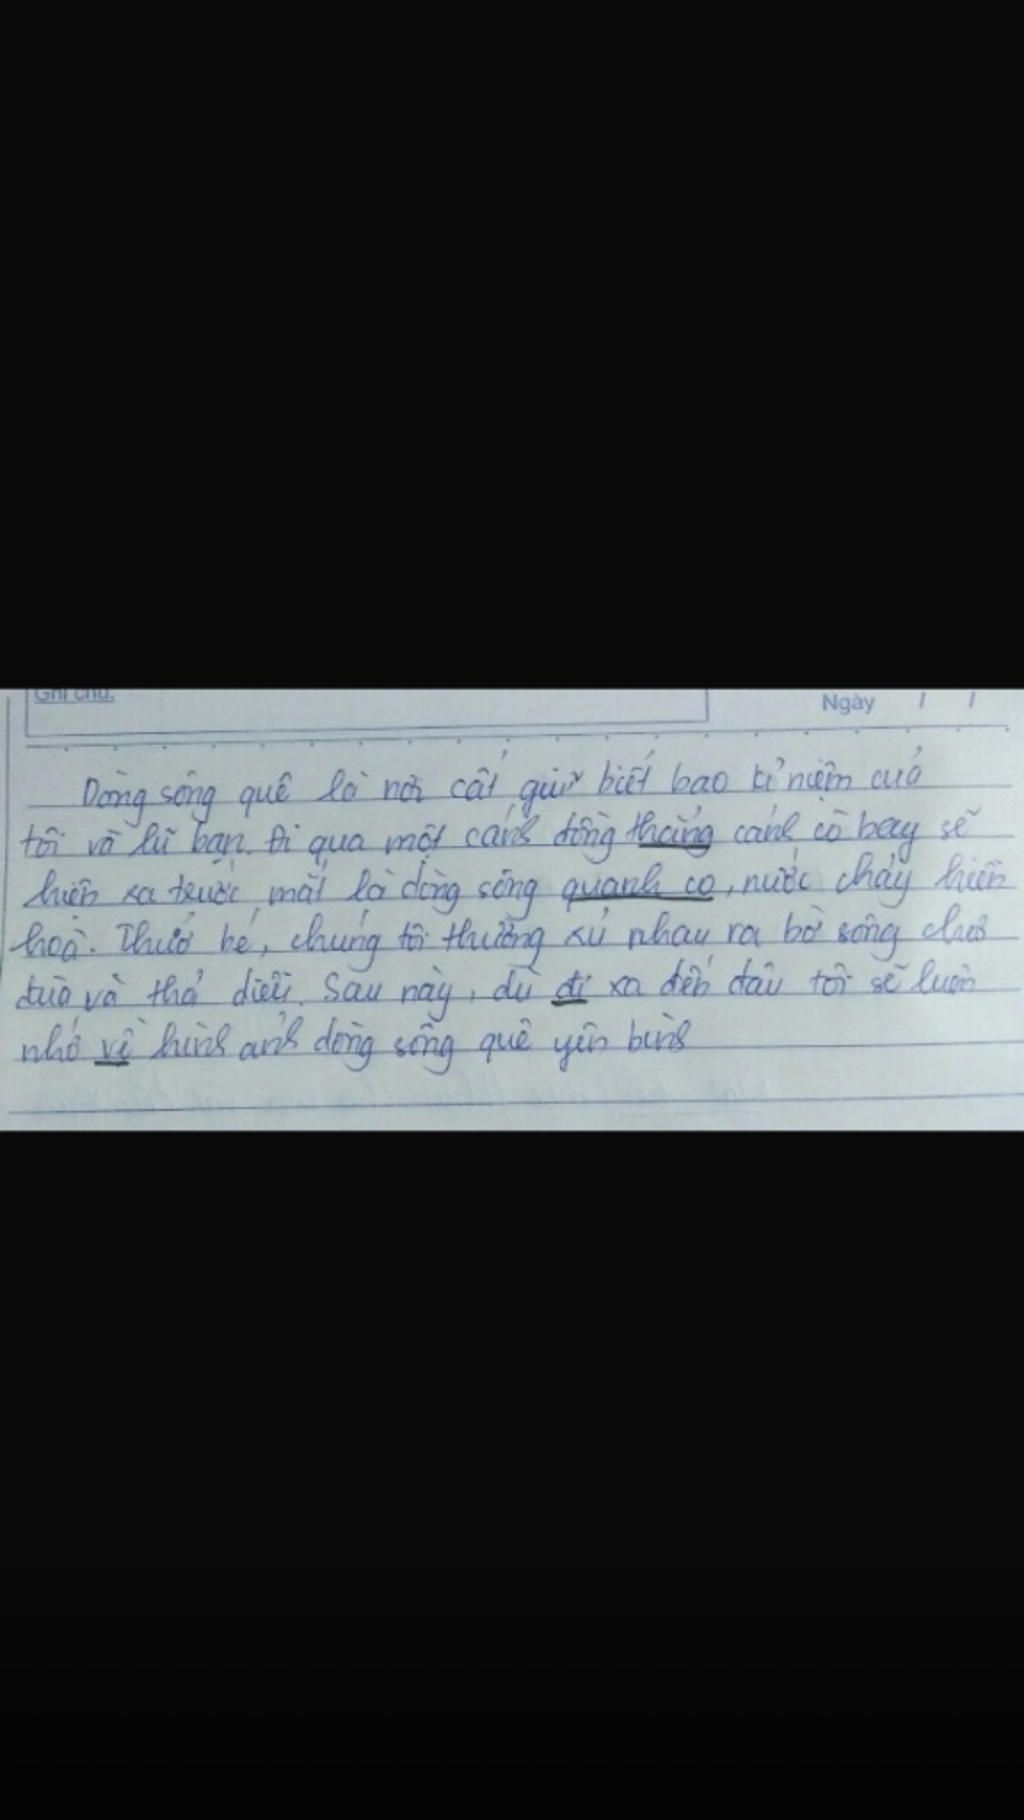 Ghi chú.
Ngày / /
Dòng sông quê là nơi cất giữ biết bao kỉ niệm của
tôi và lũ bạn. Đi qua một cánh đồng thẳng cánh cò bay sẽ
hiện ra trước mắt là dòng sông quanh co, nước chảy hiền
hoà. Thuở bé, chúng tôi thường rủ nhau ra bờ sông chơi
đùa và thả diều. Sau này, dù đi xa đến đâu tôi sẽ luôn
nhớ về hình ảnh dòng sông quê yên bình